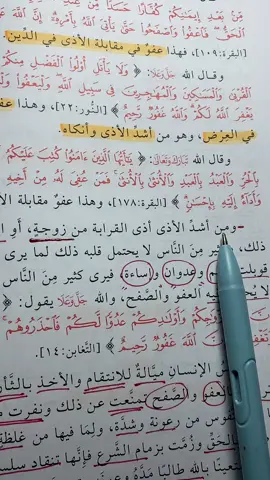 مِّنۢ بَعْدِ إِيمَٰنِكُمْ كُفَّارًا حَسَدًا مِّنْ عِندِ
ٱلْحَقُّ فَٱعْفُوا۟ وَٱصْفَحُوا۟ حَتَّىٰ يَأْتِىَ ٱللَّهُ بِأَمْرِهِۦٓ إِنَّ ٱللَّهَ
[البقرة:١٠٩]، فهذا عفوٌ في مقابلة الأذى في الدِّين.
وقال الله جَلَّ وَعَلَا: ﴿ وَلَا يَأْتَلِ أُو۟لُوا۟ ٱلْفَضْلِ مِنكُمْ
ٱلْقُرْبَىٰ وَٱلْمَسَٰكِينَ وَٱلْمُهَٰجِرِينَ فِى سَبِيلِ ٱللَّهِ وَلْيَعْفُوا۟
يَغْفِرَ ٱللَّهُ لَكُمْ وَٱللَّهُ غَفُورٌ رَّحِيمٌ ﴾ [النُّور:٢٢]، وهذا عفو
في العِرْض، وهو من أشدِّ الأذى وأنكاه.
وقال الله تَبَارَكَ وَتَعَالَى: ﴿ يَٰٓأَيُّهَا ٱلَّذِينَ ءَامَنُوا۟ كُتِبَ عَلَيْكُمُ
بِٱلْحُرِّ وَٱلْعَبْدُ بِٱلْعَبْدِ وَٱلْأُنثَىٰ بِٱلْأُنثَىٰ فَمَنْ عُفِىَ لَهُۥ مِنْ أَخِيهِ
وَأَدَآءٌ إِلَيْهِ بِإِحْسَٰنٍ ﴾ [البقرة:١٧٨]، وهذا عفوٌ مقابلة
ومِن أشدِّ الأذى أذى القرابة من زوجةٍ، أو
ذلك، من النَّاس لا يحتمل قلبه ذلك لما يرى
قوبلت وعدوانٍ وإساءة، فيرى كثير مِن النَّاس
العفو والصَّفح، والله جَلَّ وَعَلَا يقول: ﴿
وَأَوْلَٰدِكُمْ عَدُوًّا لَّكُمْ فَٱحْذَرُوهُمْ
ٱللَّهَ غَفُورٌ رَّحِيمٌ ﴾ [التَّغابن:١٤].
الإنسان ميَّالةٌ للانتقام والأخذ بالثَّأر
بالعفو والصَّفح تمنَّعت عن ذلك ونفرت
النفوس من رعونة وشدَّة، ولِمَا فيها من غلظة
بالحَقِّ وزُمَّت بزمام الشَّرع فإنَّها تنقاد
بالله طالبًا مَدَّهُ